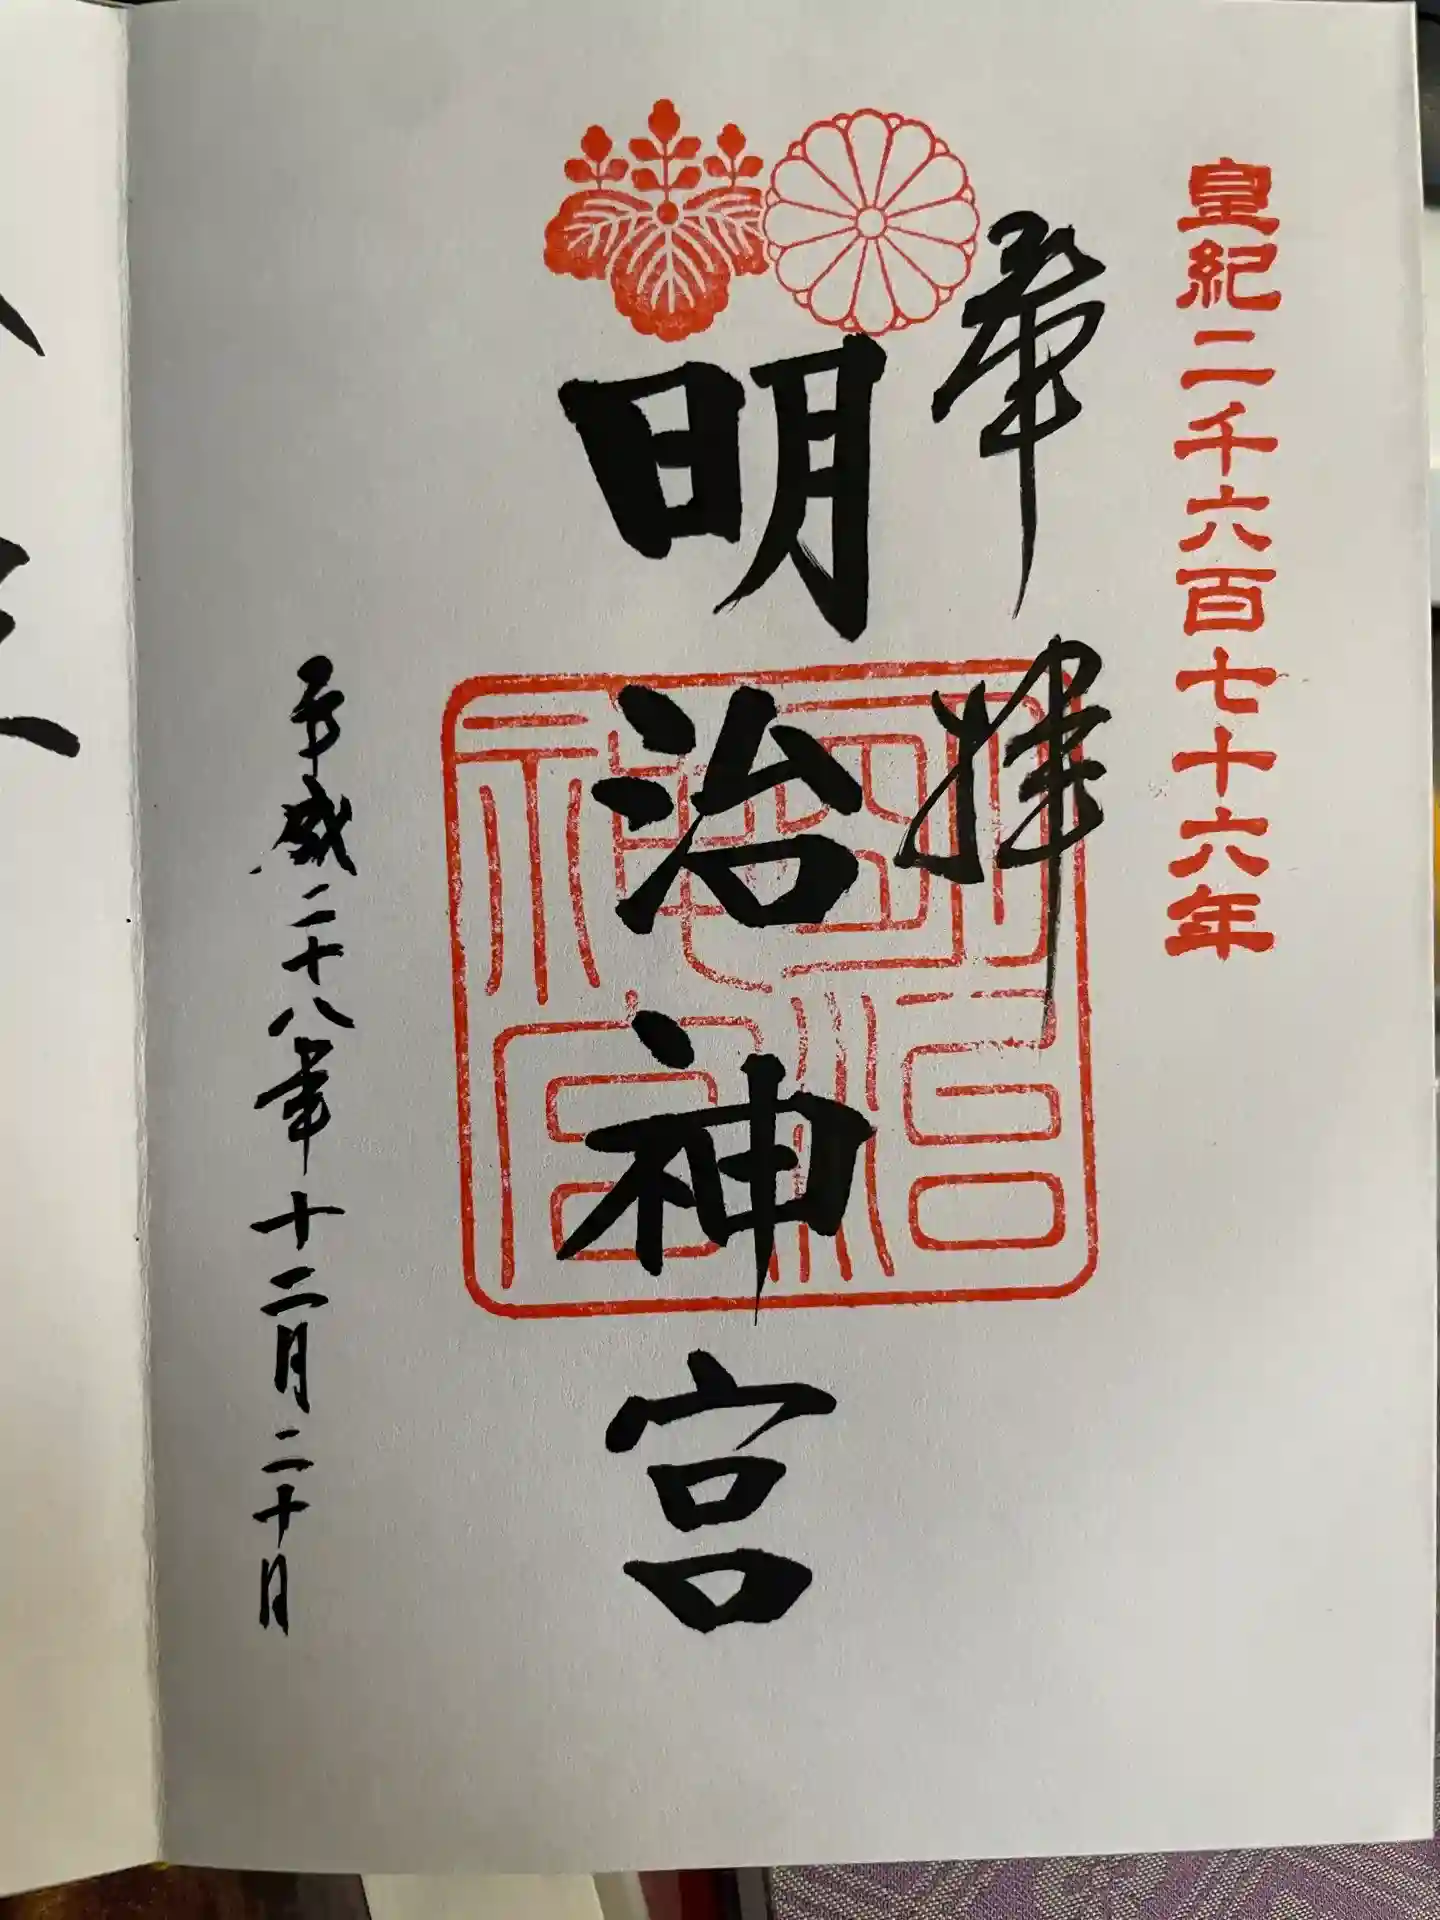 皇紀二千六百七十六年
奉拝
明治神宮
明治神宮
平成二十八年十二月二十日